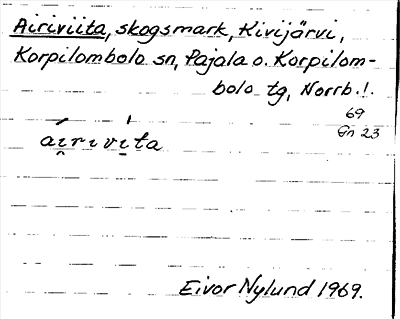 Airiviita, skogsmark, Kivijärvi,
Korpilombolo sn, Pajala o. Korpilom-
bolo tg, Norrb. l.
69
Gn 23
ái̯rıvı̣́ta
Eivor Nylund 1969.